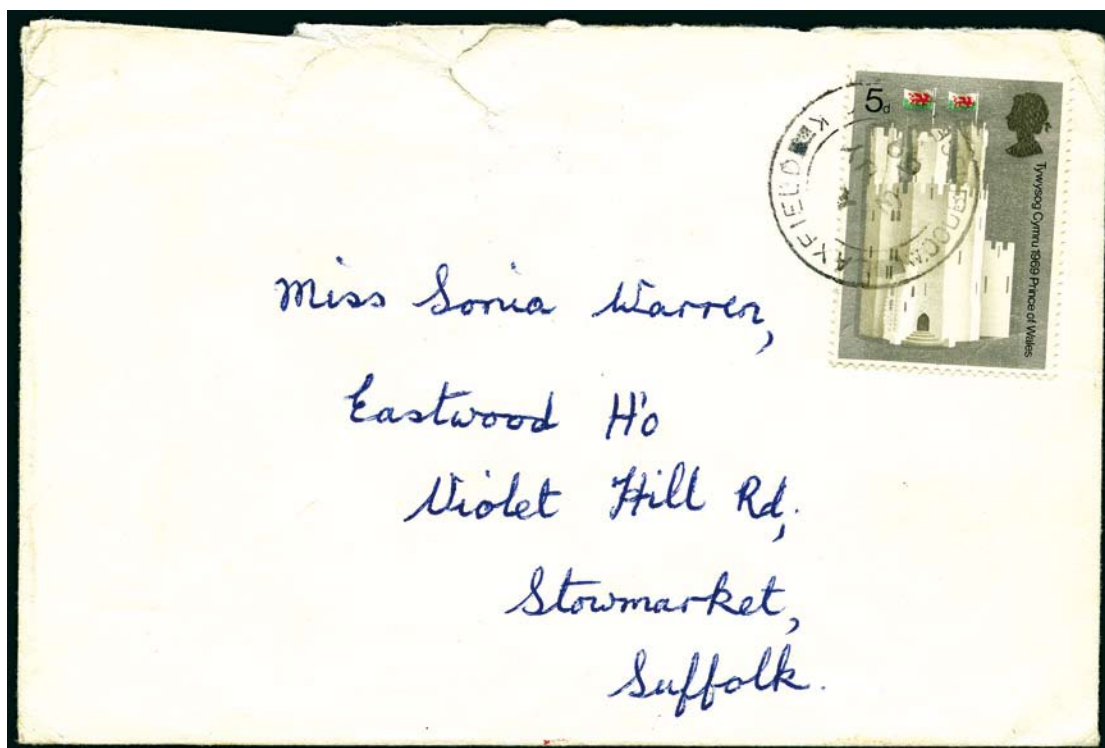 5d
Tywysog Cymru 1969 Prince of Wales
LAXFIELD
Miss Sonia Warren,
Eastwood H'o
Violet Hill Rd,
Stowmarket,
Suffolk.